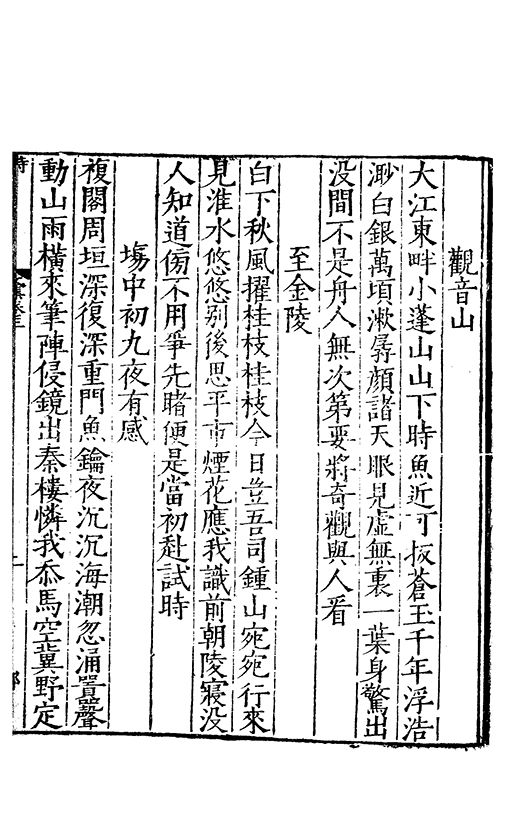 觀音山
大江東畔小蓬山山下時魚近可扳蒼玉千年浮浩
渺白銀萬頃漱孱顏諸天眼見虛無裏一葉身驚出
没間不是舟人無次第要將奇觀與人看
至金陵
白下秋風擢桂枝桂枝今日豈吾司鍾山宛宛行來
見淮水悠悠别後思平市煙花應我識前朝陵寢没
人知道傍不用爭先睹便是當初赴試時
塲中初九夜有感
複閣周垣深復深重門魚鑰夜沉沉海潮忽涌聲
動山雨橫來筆陣侵鏡出秦樓憐我忝馬空冀野定